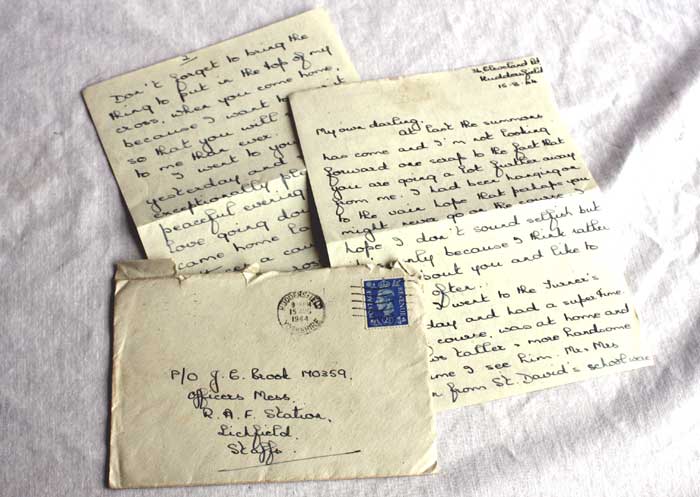 Don't forget to bring the
thing to put in the top of my
cross, when you come home,
because I want to
so that you will
to me than ever.
I went to
yesterday and
exceptionally
peaceful evening
love going
came home
a
36 Cleveland Rd
Huddersfield
15-8-44
My own darling,
At last the summons
has come and I'm not looking
forward one scrap to the fact that
you are going a lot further away
from me. I had been hanging on
to the vain hope that perhaps you
might never go
hope I don't sound selfish but
only because I think rather
about you and like to
after.
I went to the Turner's
day and had a super time.
course, was at home and
taller & more handsome
time I see him. Mr, Mrs
from St. David's school were
HUDDERSFIELD
15 AUG
1944
YORKSHIRE
POSTAGE
REVENUE
P/O J. E. Brook M0359.
Officers Mess.
R.A.F. Station,
Lichfield.
Staffs.